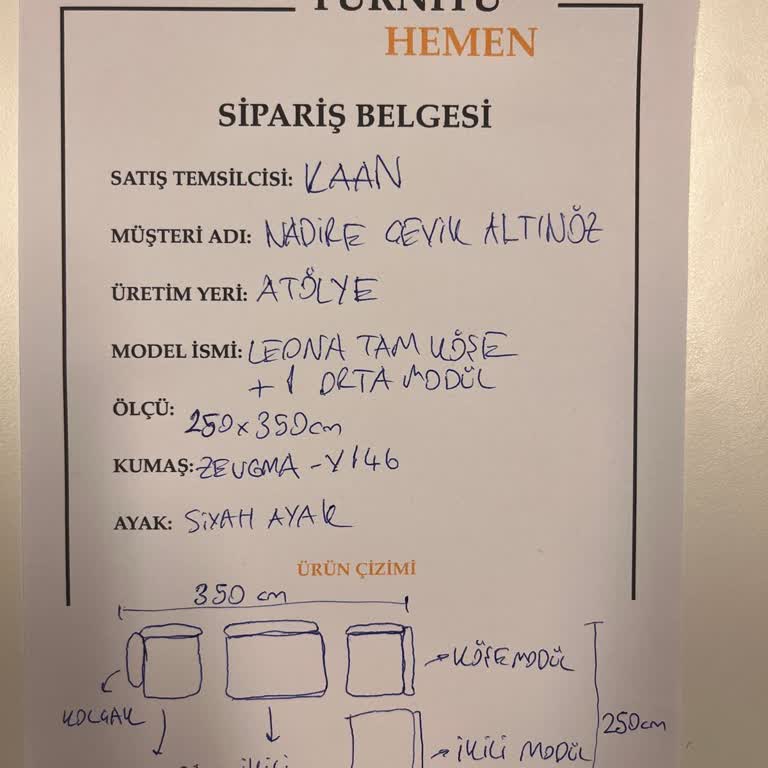 HEMEN
SİPARİŞ BELGESİ
SATIŞ TEMSİLCİSİ: KAAN
MÜŞTERİ ADI: NADİRE ÇEVİK ALTINÖZ
ÜRETİM YERİ: ATÖLYE
MODEL İSMİ: LEONA TAM KÖŞE
+ 1 ORTA MODÜL
ÖLÇÜ:
250x350cm
KUMAŞ: ZEUGMA -Y146
AYAK: SİYAH AYAK
ÜRÜN ÇİZİMİ
350 cm
KÖŞE MODÜL
KOLÇAK
250cm
İKİLİ
İKİLİ MODÜL